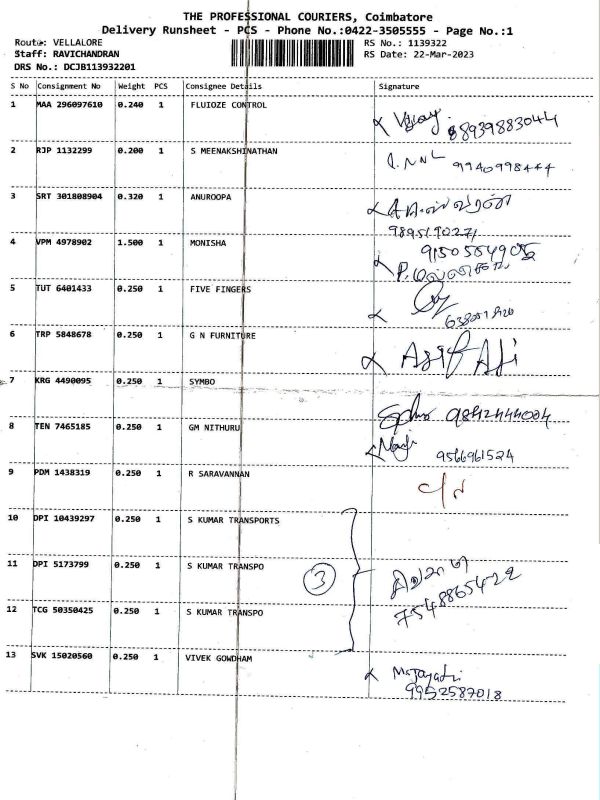 THE PROFESSIONAL COURIERS, Coimbatore
Delivery Runsheet - PCS - Phone No.:0422-3505555 - Page No.:1
Route: VELLALORE RS No.: 1139322
Staff: RAVICHANDRAN RS Date: 22-Mar-2023
DRS No.: DCJB113932201
S No Consignment No Weight PCS Consignee Details Signature
1 MAA 296097610 0.240 1 FLUIOZE CONTROL
Vijay 8939883044
2 RJP 1132299 0.200 1 S MEENAKSHINATHAN
9940998444
3 SRT 301808904 0.320 1 ANUROOPA
9895190271
4 VPM 4978902 1.500 1 MONISHA
5 TUT 6401433 0.250 1 FIVE FINGERS
6 TRP 5848678 0.250 1 G N FURNITURE
7 KRG 4490095 0.250 1 SYMBO
9842444004
8 TEN 7465185 0.250 1 GM NITHURU
9566961524
9 PDM 1438319 0.250 1 R SARAVANNAN
10 DPI 10439297 0.250 1 S KUMAR TRANSPORTS
11 DPI 5173799 0.250 1 S KUMAR TRANSPO
3
7548865422
12 TCG 50350425 0.250 1 S KUMAR TRANSPO
13 SVK 15020560 0.250 1 VIVEK GOWDHAM
9952587018